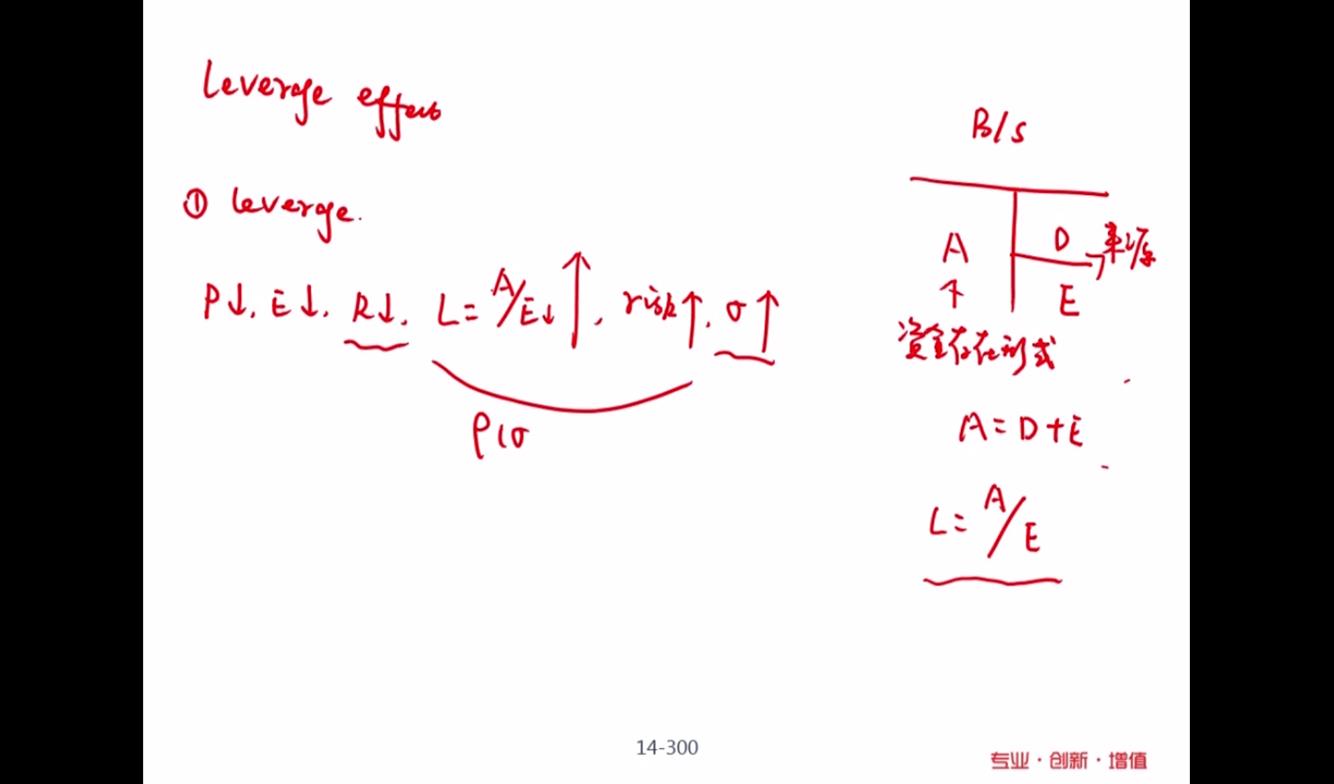 Leverage effect
① leverage.
P↓. E↓. R↓. L = A/E↓ ↑, risk↑. σ↑
ρ(σ
B/S
A
D → 来源
E
↑
资金存在形式
A = D + E
L = A/E
14-300
专业·创新·增值